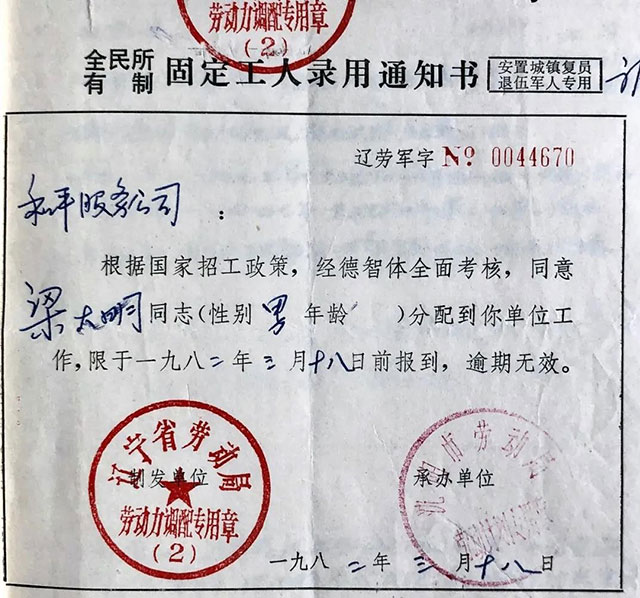 劳动力调配专用章
(2)
全民所有制 固定工人录用通知书 安置城镇复员退伍军人专用
辽劳军字 № 0044670
和平服务公司:
根据国家招工政策,经德智体全面考核,同意
梁大明同志(性别男年龄 )分配到你单位工
作,限于一九八二年三月十八日前报到,逾期无效。
辽宁省劳动局
制发单位
劳动力调配专用章
(2)
市劳动局
承办单位
一九八二年三月十八日